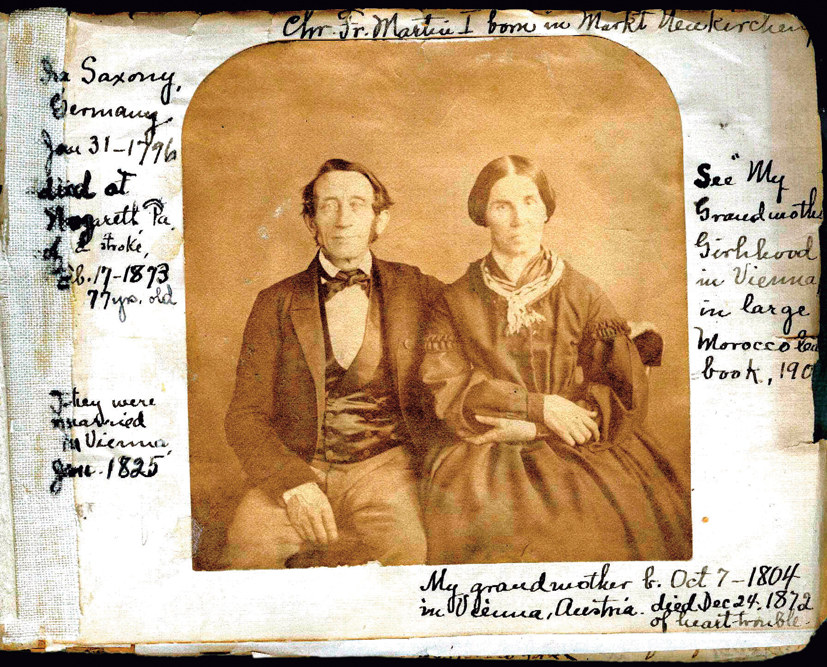 Chr. Fr. Martin I born in Markt Neukirchen
in Saxony,
Germany
Jan 31-1796
died at
Nazareth Pa.
of a stroke,
Feb. 17-1873
77 yrs. old
They were
married
in Vienna,
Jan. 1825
See "My
Grandmother
Girlhood
in Vienna
in large
Morocco
book, 190
My grandmother b. Oct 7-1804
in Vienna, Austria. died Dec 24. 1872
of heart-trouble.